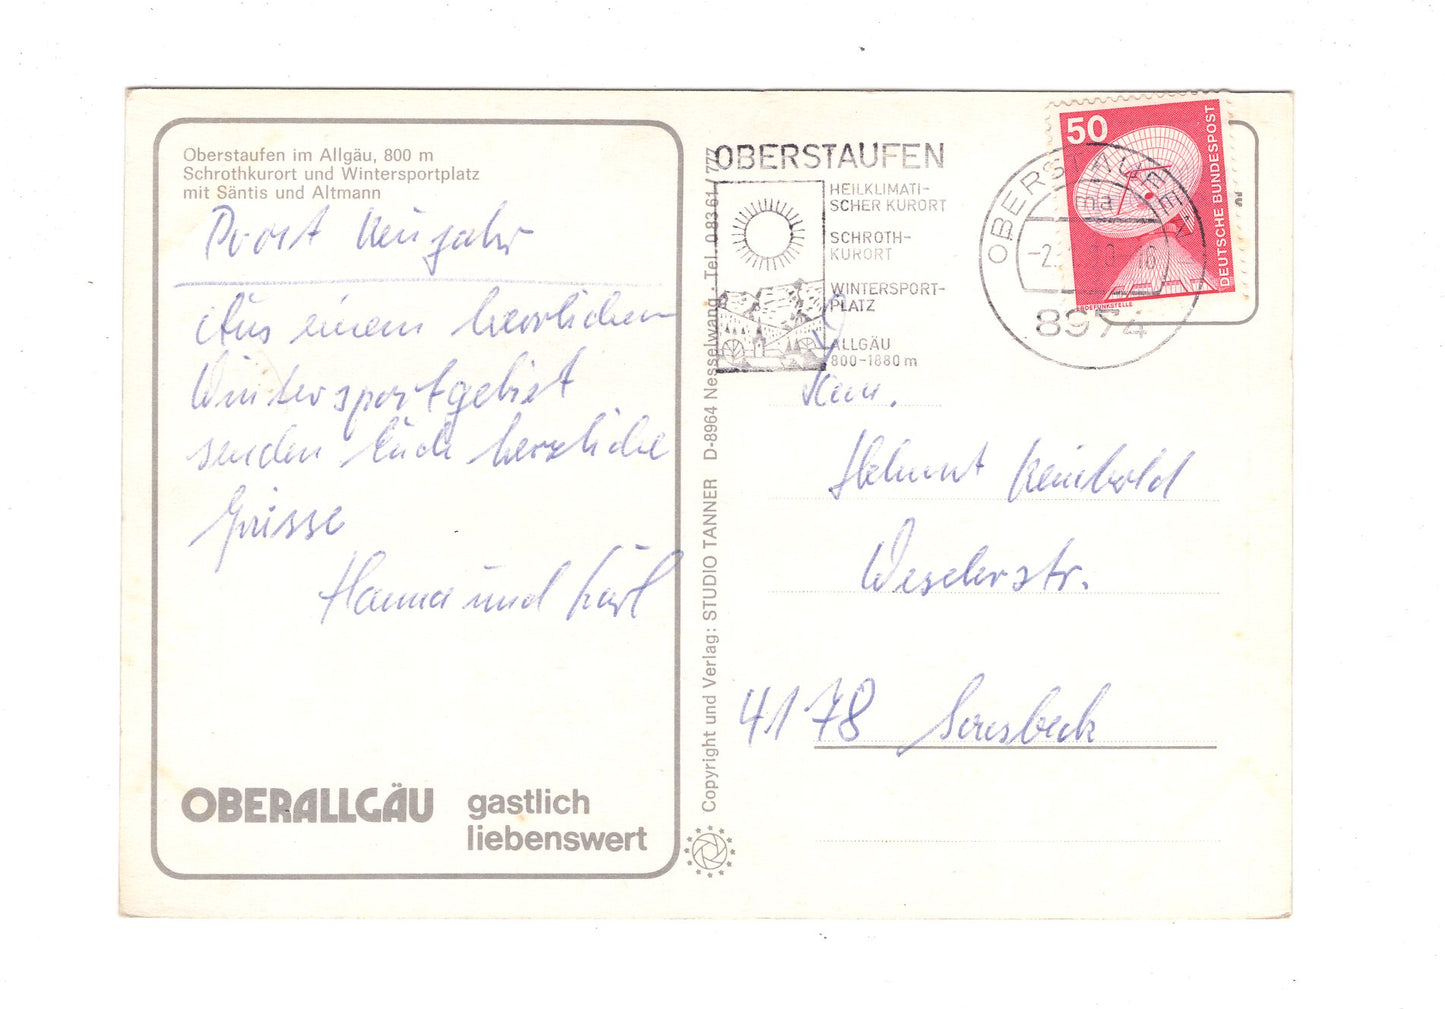 Oberstaufen im Allgäu, 800 m
Schrothkurort und Wintersportplatz
mit Säntis und Altmann
Prost Neujahr
Aus einem herrlichen
Wintersportgebiet
senden Euch herzliche
Grüsse
Hanna und Karl
OBERALLGÄU gastlich
liebenswert
Copyright und Verlag: STUDIO TANNER D-8964 Nesselwang · Tel. 0 83 61 / 777
OBERSTAUFEN
HEILKLIMATI-
SCHER KURORT
SCHROTH-
KURORT
WINTERSPORT-
PLATZ
ALLGÄU
800-1880 m
OBERSTAUFEN
ma
8974
50
DEUTSCHE BUNDESPOST
ERDEFUNKSTELLE
Fam.
Helmut Reinbold
Weselerstr.
4178 Sonsbeck